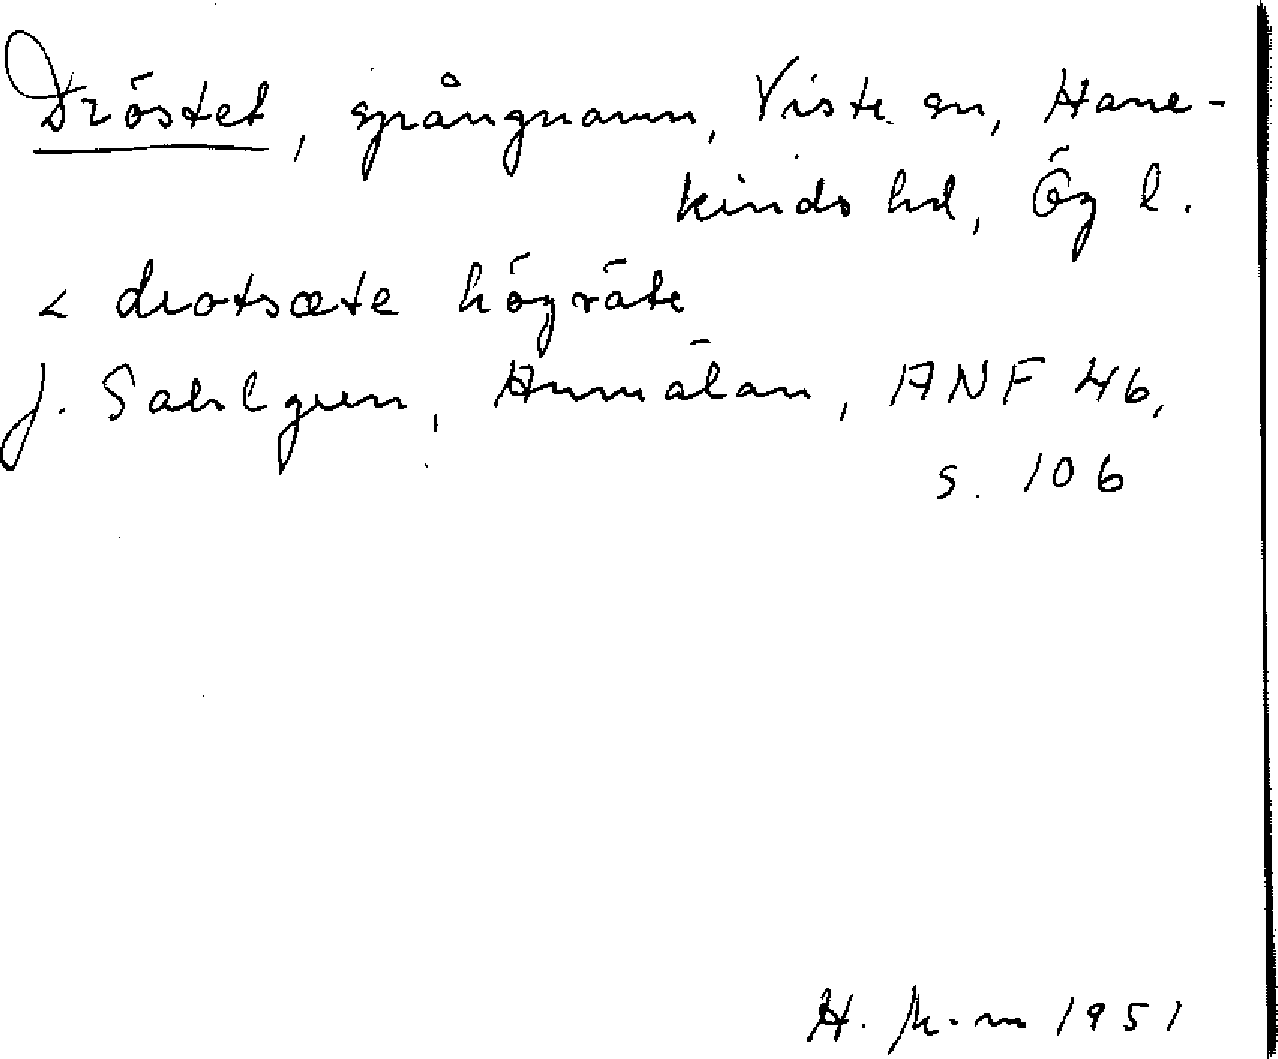 Dröstet, spångnamn, Viste sn, Hane-
kinds hd, Ög l.
< drotsæte högsäte
J. Sahlgren, Anmälan, ANF 46,
s. 106
H. K-m 1951